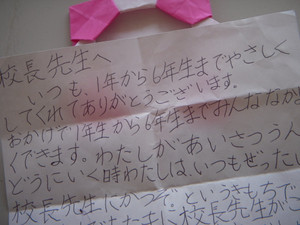 校長先生へ
いつも、1年から6年生までやさしく
してくれてありがとうございます。
おかげで1年生から6年生までみんななかよ
くできます。わたしがあいさつうん
どうにいく時わたしは、いつもぜったい
校長先生にかつぞ。というきもちで
校長先生が